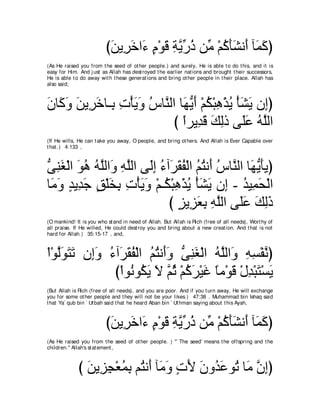 (كَمَآ أَنشَأَكُمْ مِّن ذُرِّيَّةِ قَوْمٍ ءَاخَرِينَ)
(As He raised you from the seed of other people.) and surely, He is able to do this, and it is
easy for Him. And just as Allah has destroyed the earlier nations and brought their successors,
He is able to do away with these generations and bring other people in their place. Allah has
also said;
(إِن يَشَأْ يُذْهِبْكُمْ أَيُّهَا النَّاسُ وَيَأْتِ بِـاخَرِينَ وَكَانَ
اللَّهُ عَلَى ذلِكَ قَدِيراً )
(If He wills, He can take you away, O people, and bring others. And Allah is Ever Capable over
that.) 4:133 ,
(يأَيُّهَا النَّاسُ أَنتُمُ الْفُقَرَآءُ إِلَى اللَّهِ وَاللَّهُ هُوَ الْغَنِىُّ
الْحَمِيدُ - إِن يَشَأْ يُذْهِبْكُـمْ وَيَأْتِ بِخَلْقٍ جَدِيدٍ وَمَا
ذَلِكَ عَلَى اللَّهِ بِعَزِيزٍ )
(O mankind! It is you who stand in need of Allah. But Allah is Rich (free of all needs), Worthy of
all praise. If He willed, He could destroy you and bring about a new creation. And that is not
hard for Allah.) 35:15-17 , and,
(وَاللَّهُ الْغَنِىُّ وَأَنتُمُ الْفُقَرَآءُ وَإِن تَتَوَلَّوْاْ
يَسْتَبْدِلْ قَوْماً غَيْرَكُمْ ثُمَّ لاَ يَكُونُواْ)
(But Allah is Rich (free of all needs), and you are poor. And if you turn away, He will exchange
you for some other people and they will not be your likes.) 47:38 . Muhammad bin Ishaq said
that Ya`qub bin `Utbah said that he heard Aban bin `Uthman saying about this Ayah,
(كَمَآ أَنشَأَكُمْ مِّن ذُرِّيَّةِ قَوْمٍ ءَاخَرِينَ)
(As He raised you from the seed of other people. ) "`The seed' means the offspring and the
children.'' Allah's statement,
(إِنَّ مَا تُوعَدُونَ لأَتٍ وَمَآ أَنتُم بِمُعْجِزِينَ )